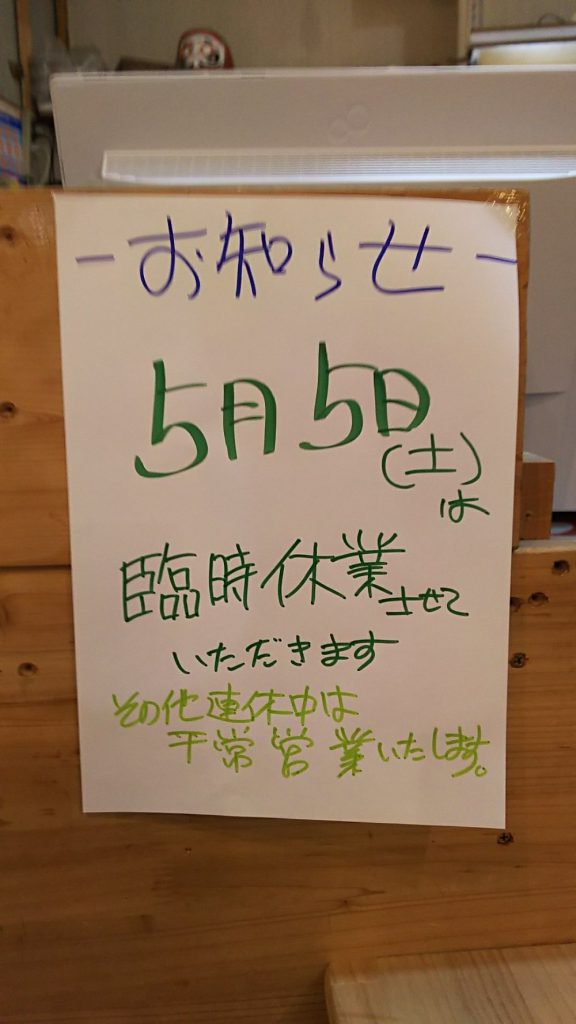 -お知らせ-
5月5日
(土)
は
臨時休業させて
いただきます
その他連休中は
平常営業いたします。